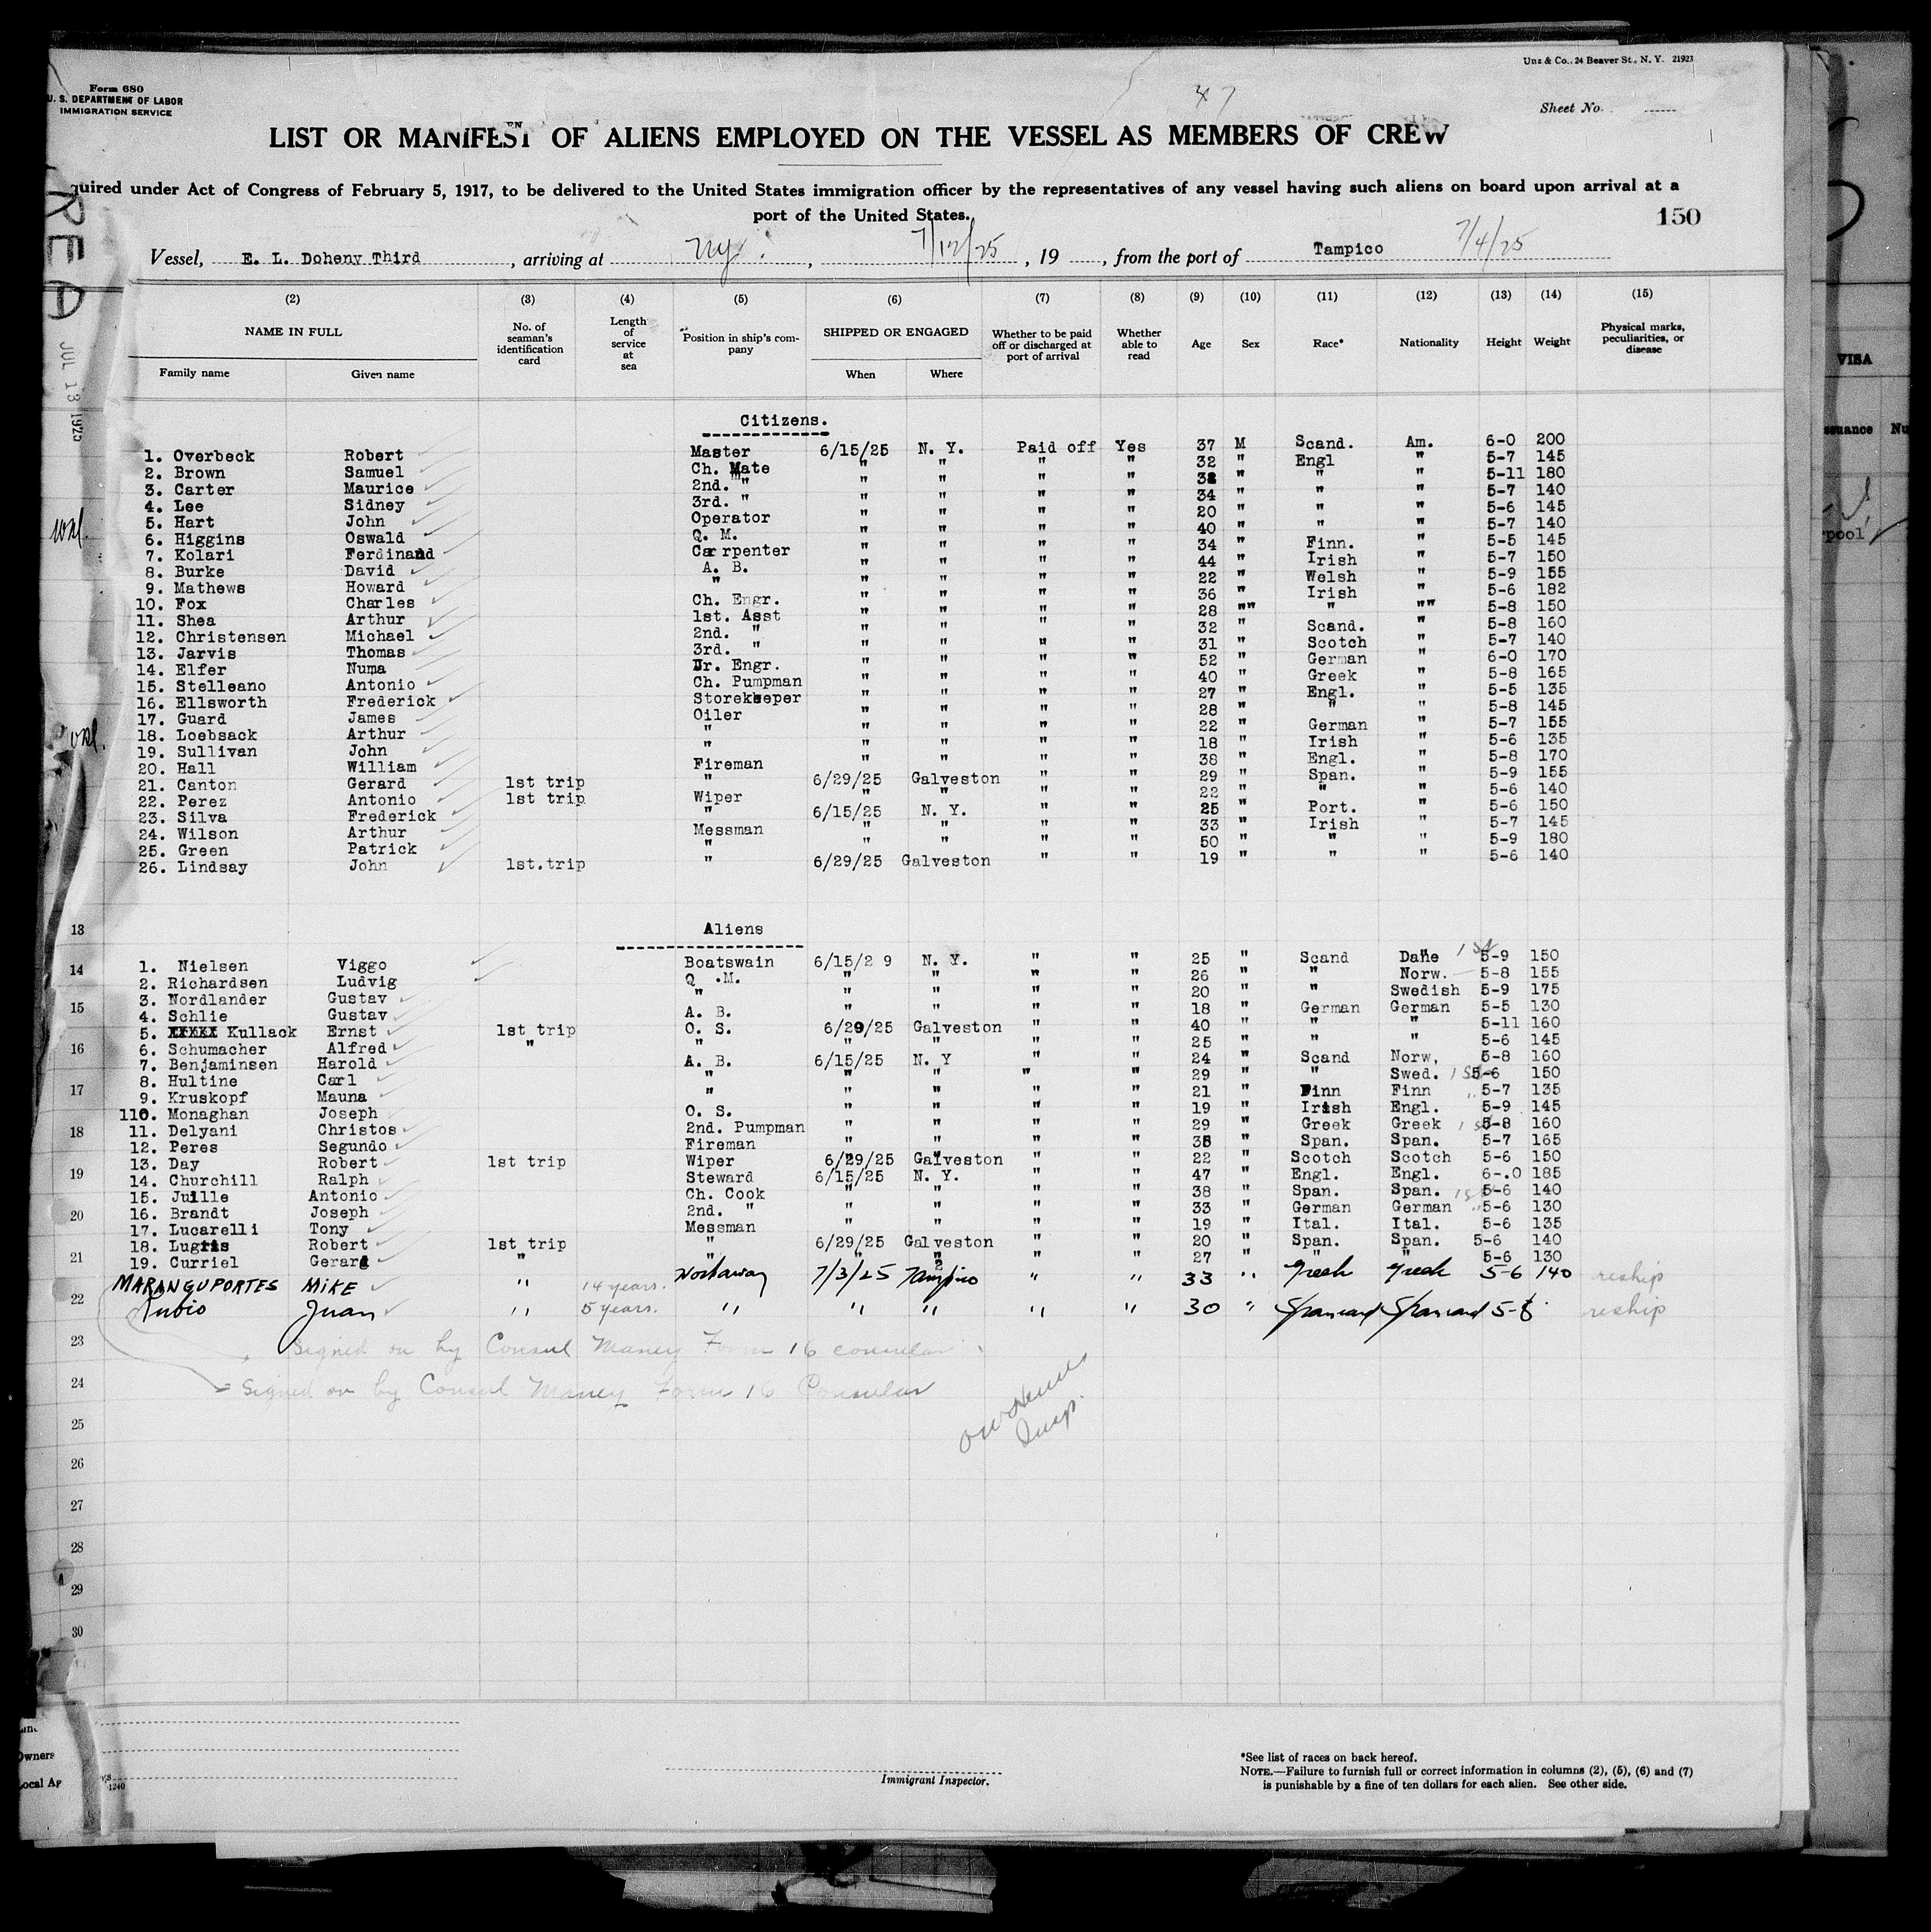 Unz & Co., 24 Beaver St., N. Y. 21923
Form 680
U. S. DEPARTMENT OF LABOR
IMMIGRATION SERVICE
Sheet No.
LIST OR MANIFEST OF ALIENS EMPLOYED ON THE VESSEL AS MEMBERS OF CREW
quired under Act of Congress of February 5, 1917, to be delivered to the United States immigration officer by the representatives of any vessel having such aliens on board upon arrival at a
port of the United States.
150
Vessel, E. L. Doheny Third, arriving at Ny., 7/12/25, 19 , from the port of Tampico 7/4/25
JUL 13 1925
(2) (3) (4) (5) (6) (7) (8) (9) (10) (11) (12) (13) (14) (15)
NAME IN FULL
Family name Given name
No. of seaman's identification card
Length of service at sea
Position in ship's company
SHIPPED OR ENGAGED
When Where
Whether to be paid off or discharged at port of arrival
Whether able to read
Age Sex Race* Nationality Height Weight
Physical marks, peculiarities, or disease
VISA
Citizens.
1. Overbeck Robert Master 6/15/25 N. Y. Paid off Yes 37 M Scand. Am. 6-0 200
2. Brown Samuel Ch. Mate " " " " 32 " Engl " 5-7 145
3. Carter Maurice 2nd. " " " " " " " " 5-11 180
4. Lee Sidney 3rd. " " " " " 34 " " " 5-7 140
5. Hart John Operator " " " " 20 " " " 5-6 145
6. Higgins Oswald Q. M. " " " " 40 " " " 5-7 140
7. Kolari Ferdinand Carpenter " " " " 34 " Finn. " 5-5 145
8. Burke David A. B. " " " " 44 " Irish " 5-7 150
9. Mathews Howard " " " " " 22 " Welsh " 5-9 155
10. Fox Charles Ch. Engr. " " " " 36 " Irish " 5-6 182
11. Shea Arthur 1st. Asst " " " " 28 "" " "" 5-8 150
12. Christensen Michael 2nd. " " " " " 32 " Scand. " 5-8 160
13. Jarvis Thomas 3rd. " " " " " 31 " Scotch " 5-7 140
14. Elfer Numa Jr. Engr. " " " " 52 " German " 6-0 170
15. Stelleano Antonio Ch. Pumpman " " " " 40 " Greek " 5-8 165
16. Ellsworth Frederick Storekeeper " " " " 27 " Engl. " 5-5 135
17. Guard James Oiler " " " " 28 " " " 5-8 145
18. Loebsack Arthur " " " " " 22 " German " 5-7 155
19. Sullivan John " " " " " 18 " Irish " 5-6 135
20. Hall William Fireman " " " " 38 " Engl. " 5-8 170
21. Canton Gerard 1st trip " 6/29/25 Galveston " " 29 " Span. " 5-9 155
22. Perez Antonio 1st trip Wiper " " " " 22 " " " 5-6 140
23. Silva Frederick " 6/15/25 N. Y. " " 25 " Port. " 5-6 150
24. Wilson Arthur Messman " " " " 33 " Irish " 5-7 145
25. Green Patrick " " " " " 50 " " " 5-9 180
26. Lindsay John 1st.trip " 6/29/25 Galveston " " 19 " " " 5-6 140
13 Aliens
14
1. Nielsen Viggo Boatswain 6/15/2 9 N. Y. " " 25 " Scand Dane 1st 5-9 150
2. Richardsen Ludvig Q .M. " " " " 26 " " Norw. 5-8 155
3. Nordlander Gustav " " " " " 20 " " Swedish 5-9 175
15
4. Schlie Gustav A. B. " " " " 18 " German German 5-5 130
5. XXXXX Kullack Ernst 1st trip O. S. 6/29/25 Galveston " " 40 " " " 5-11 160
16
6. Schumacher Alfred " " " " " " 25 " " " 5-6 145
7. Benjaminsen Harold A. B. 6/15/25 N. Y " " 24 " Scand Norw, 5-8 160
8. Hultine Carl " " " " " 29 " " Swed. 5-6 150
17
9. Kruskopf Mauna " " " " " 21 " Finn Finn 5-7 135
110. Monaghan Joseph O. S. " " " " 19 " Irish Engl. 5-9 145
18
11. Delyani Christos 2nd. Pumpman " " " " 29 " Greek Greek 5-8 160
12. Peres Segundo Fireman " " " " " Span. Span. 5-7 165
13. Day Robert 1st trip Wiper 6/29/25 Galveston " " 22 " Scotch Scotch 5-6 150
19
14. Churchill Ralph Steward 6/15/25 N. Y. " " 47 " Engl. Engl. 6-.0 185
15. Juille Antonio Ch. Cook " " " " 38 " Span. Span. 5-6 140
20
16. Brandt Joseph 2nd. " " " " " 33 " German German 5-6 130
17. Lucarelli Tony Messman " " " " 19 " Ital. Ital. 5-6 135
18. Lugris Robert 1st trip " 6/29/25 Galveston " " 20 " Span. Span. 5-6 140
21
19. Curriel Gerard " " " " " " 27 " " " 5-6 130
MARANGUPORTES MIKE " 14 years. Workaway 7/3/25 Tampico " " 33 " Greek Greek 5-6 140 reship
22
Rubio Juan " 5 years. " " " " " 30 " Spaniard Spaniard 5-8 reship
23
Signed on by Consul Maney Form 16 consular
24
Signed on by Consul Maney Form 16 Consular
Insp.
25
26
27
28
29
30
Owners
Local Ag
1240
Immigrant Inspector.
*See list of races on back hereof.
NOTE.—Failure to furnish full or correct information in columns (2), (5), (6) and (7)
is punishable by a fine of ten dollars for each alien. See other side.